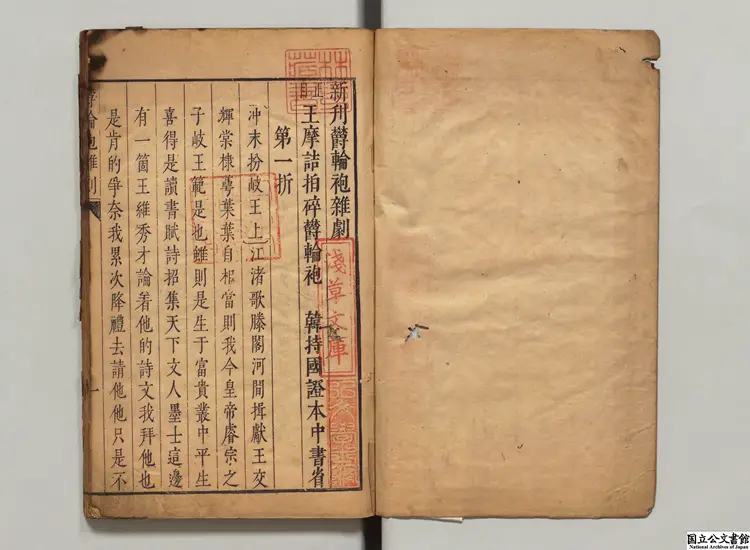 新刋欝輪袍雜劇
正目
王摩詰拍碎欝輪袍 韓持國證本中書省
第一折
冲末扮岐王上江渚歌滕閣河間揖獻王交
輝棠棣萼葉葉自相當則我今皇帝睿宗之
子岐王範是也雖則是生于富貴叢中平生
喜得是讀書賦詩招集天下文人墨士這邊
有一箇王維秀才論着他的詩文我拜他也
是肯的爭奈我累次降禮去請他他只是不
輪袍雜劇
一
淺草文庫
林氏藏書
国立公文書館
National Archives of Japan